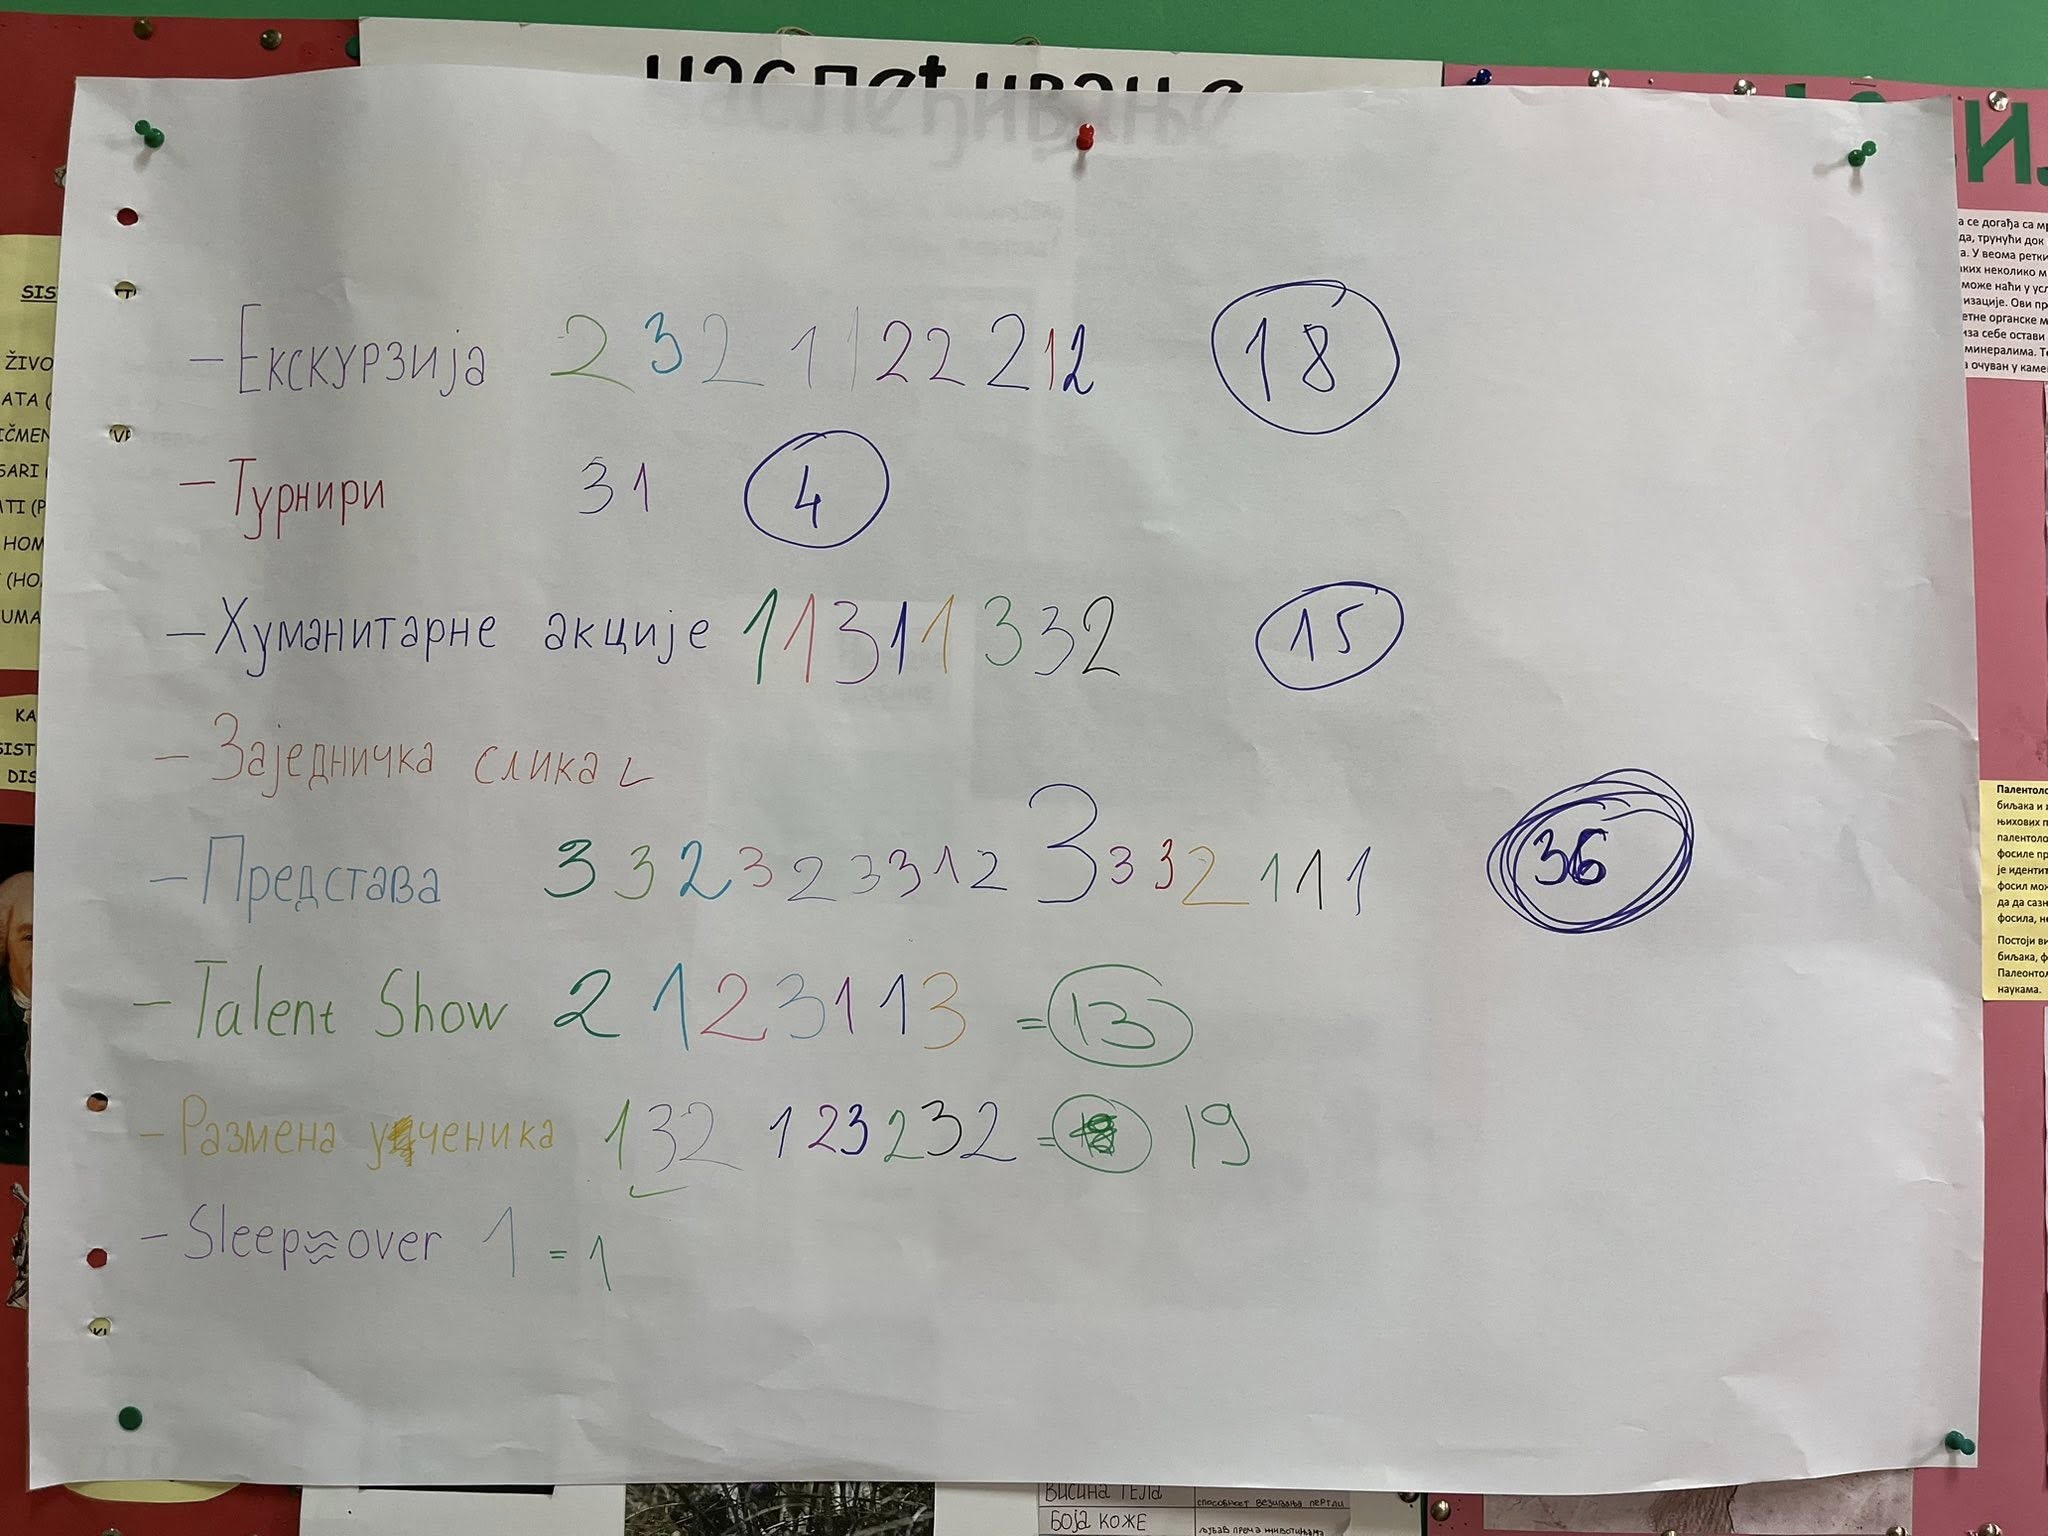 наслеђивање
- Екскурзија 2 3 2 1 1 2 2 2 1 2 18
- Турнири 3 1 4
- Хуманитарне акције 1 1 3 1 1 3 3 2 15
- Заједничка слика
- Представа 3 3 2 3 2 3 3 1 2 3 3 3 2 1 1 1 36
- Talent Show 2 1 2 3 1 1 3 = 13
- Размена ученика 1 3 2 1 2 3 2 3 2 = 19
- Sleep≈over 1 = 1
SIS
ŽIVO
АТА (
IČMEN
SARI
ATI (P
HOM
(HO
UMA
KA
SIST
DIS
а се догађа са
да, трунући док
а. У веома ретки
неколико м
може наћи у усл
изације. Ови пр
етне органске м
иза себе остави
минералима. Те
а очуван у каме
Палентоло
биљака и
њихових п
палентоло
фосиле пр
је идентит
фосил мож
да да сазн
фосила, не
Постоји ви
биљака, ф
Палеонтол
наукама.
ВИСИНА ТЕЛА способност везивања пертли
БОЈА КОЖЕ љубав према животињама